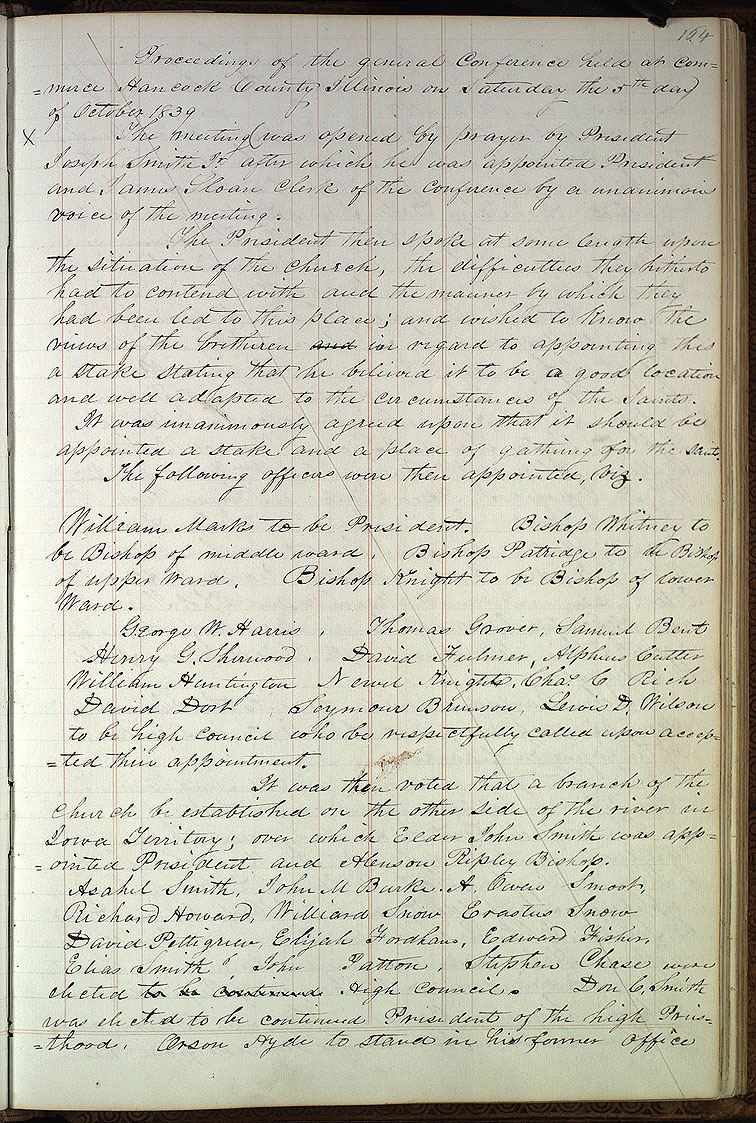 164
Proceedings of the general Conference held at Com=
=merce Hancock County Illinois on Saturday the 5th day
of October 1839
X The meeting was opened by prayer by President
Joseph Smith Jr after which he was appointed President
and James Sloan Clerk of the Conference by a unanimous
voice of the meeting.
The President then spoke at some length upon
the situation of the church, the difficulties they hitherto
had to contend with and the manner by which they
had been led to this place; and wished to know the
views of the bretheren and in regard to appointing this
a stake stating that he believed it to be a good location
and well adapted to the circumstances of the Saints.
It was unanimously agreed upon that it should be
appointed a stake and a place of gathering for the saints
The following officers were then appointed, viz.
William Marks to be President. Bishop Whitney to
be Bishop of middle ward. Bishop Patridge to be Bishop
of upper ward. Bishop Knight to be Bishop of lower
Ward.
George W. Harris, Thomas Grover, Samuel Bent
Henry G. Sherwood. David Fulmer, Alpheus Cutter
William Huntington Newel Knight, Chas C Rich
David Dort, Seymour Brunson, Lewis D. Wilson
to be high council who be respectfully called upon accep=
=ted their appointment.
It was then voted that a branch of the
church be established on the other side of the river in
Iowa Territory; over which Elder John Smith was app=
=ointed President and Alenson Ripley Bishop.
Asahel Smith, John M Burke. A. Owen Smoot,
Richard Howard, Williard Snow Erastus Snow
David Pettigrew, Elijah Fordham, Edward Fisher,
Elias Smith John Patton, Stephen Chase were
elected to be continued High Council. Don C. Smith
was elected to be continued President of the high Pries=
=thood. Orson Hyde to stand in his former office